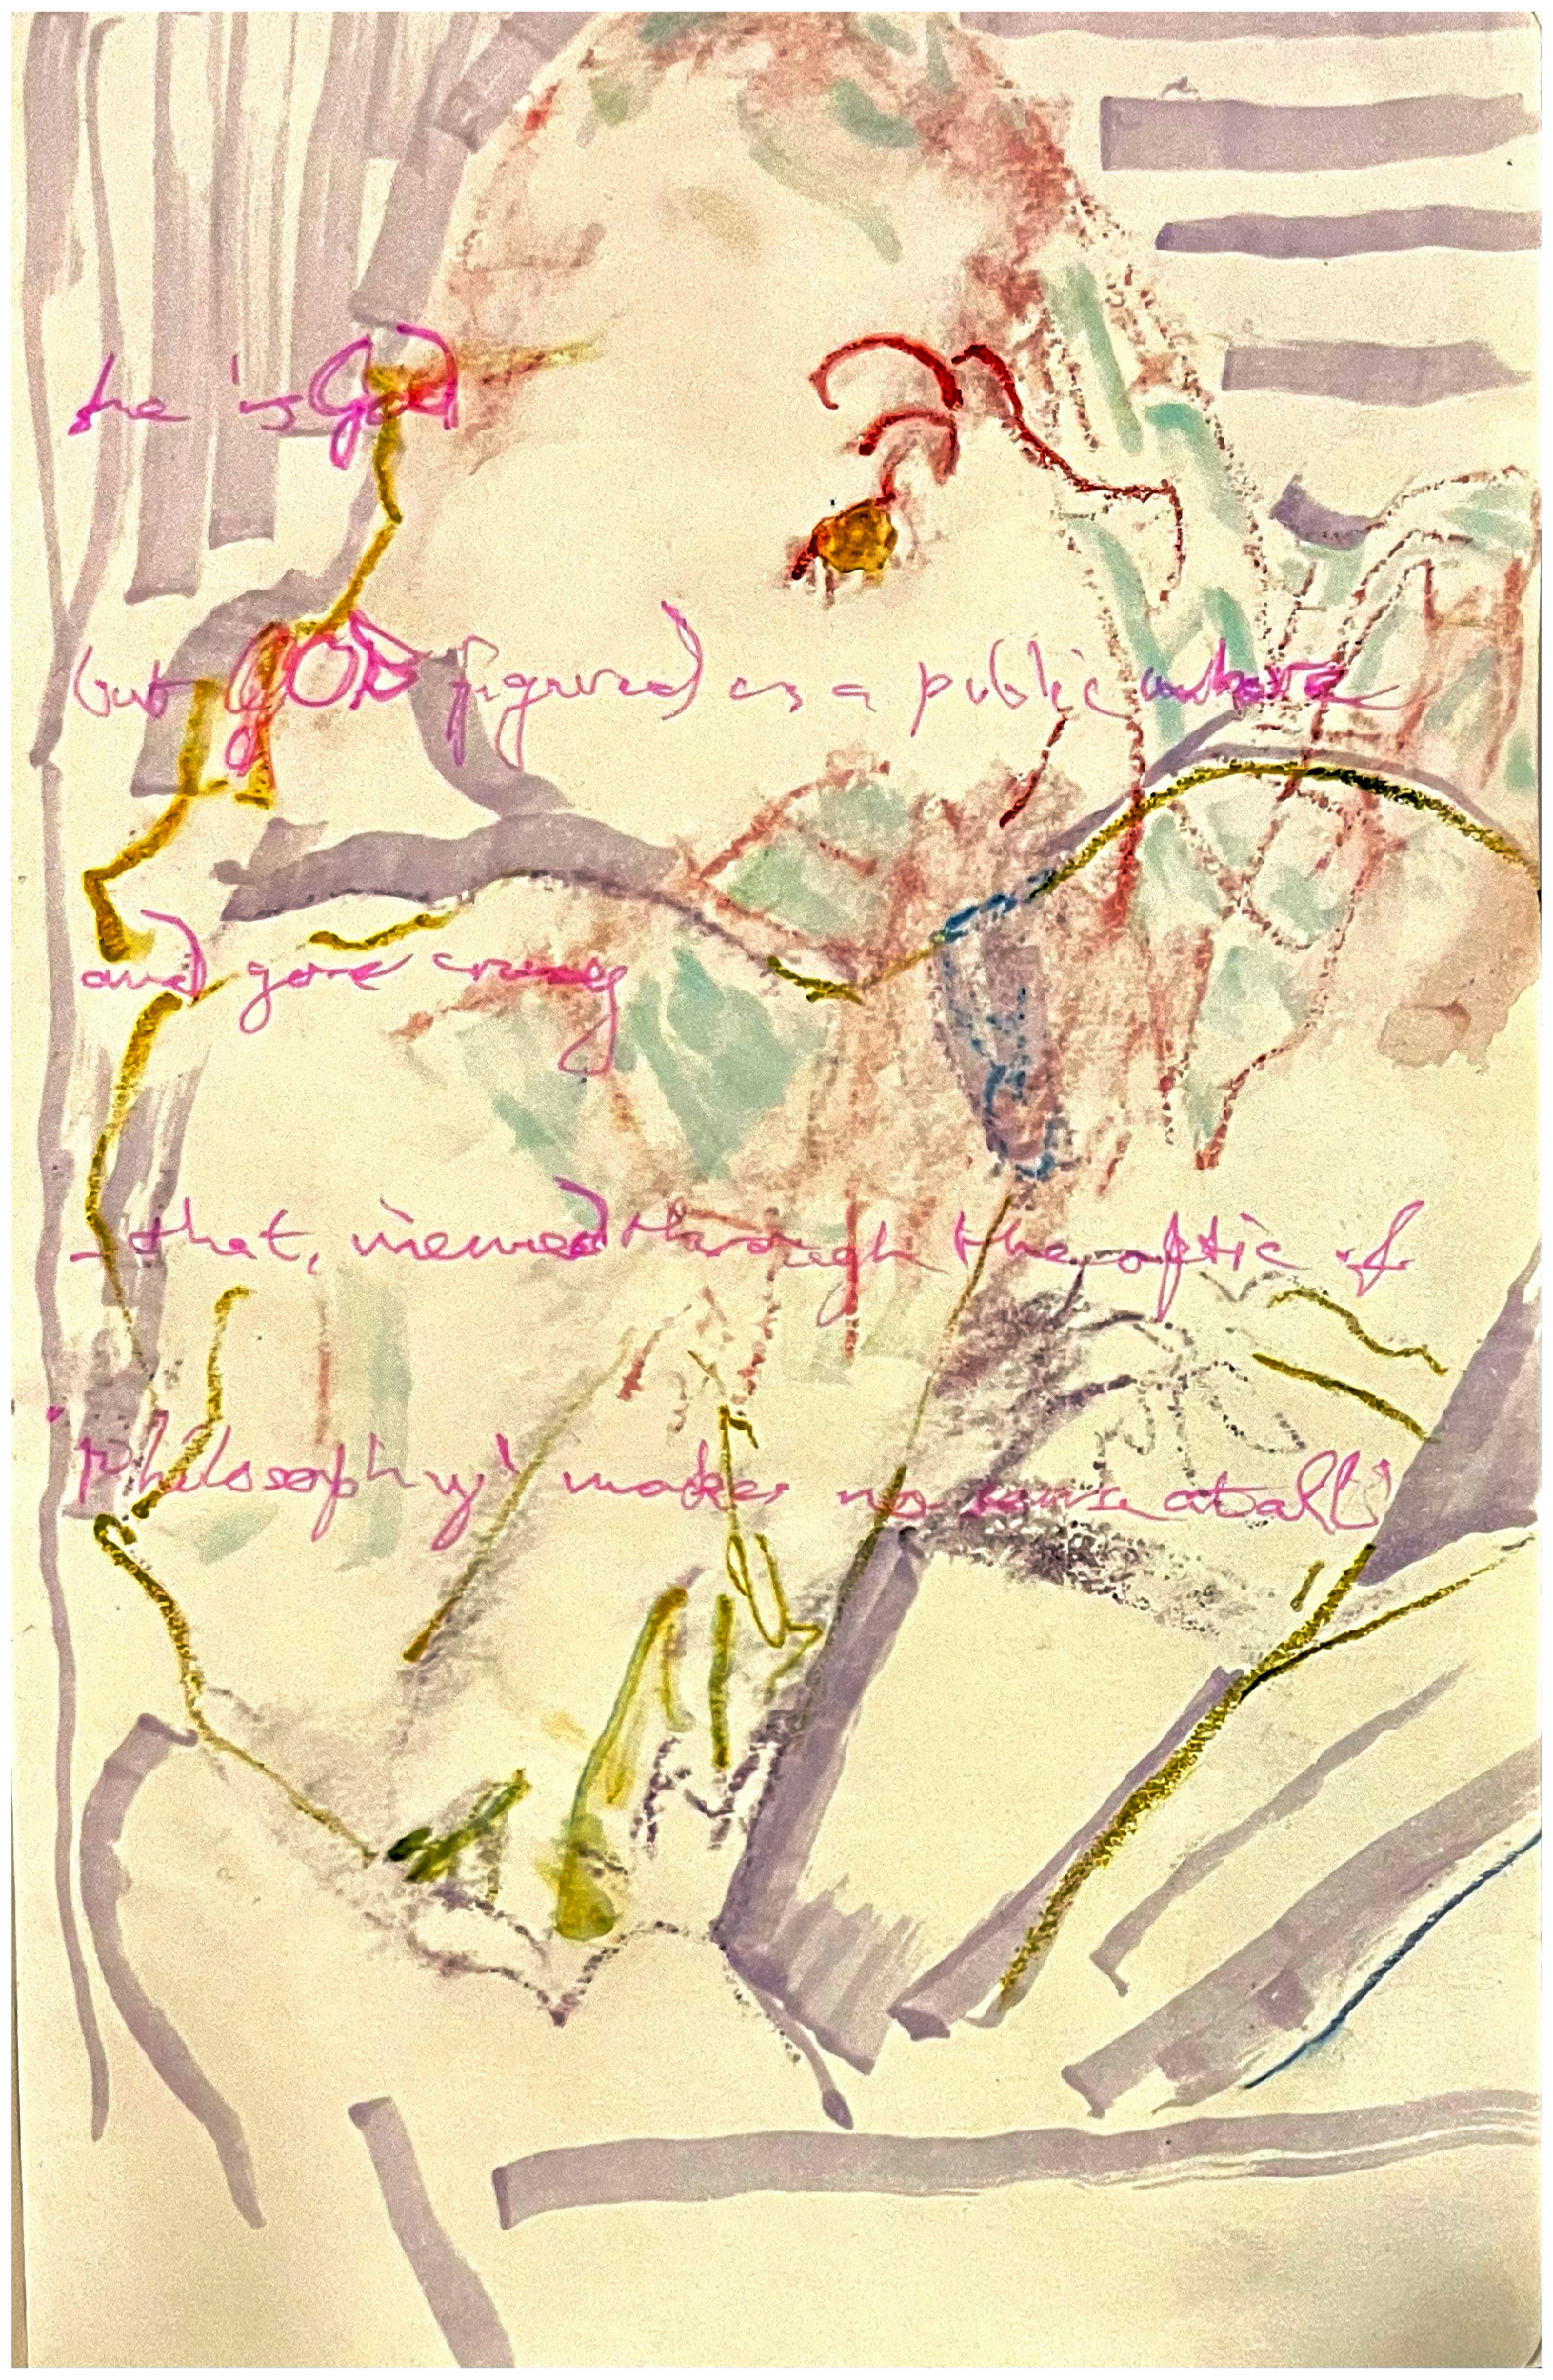 she is God
but GOD figured as a public whore
and gone crazy
- that, viewed through the optic of
'philosophy' makes no sense at all'